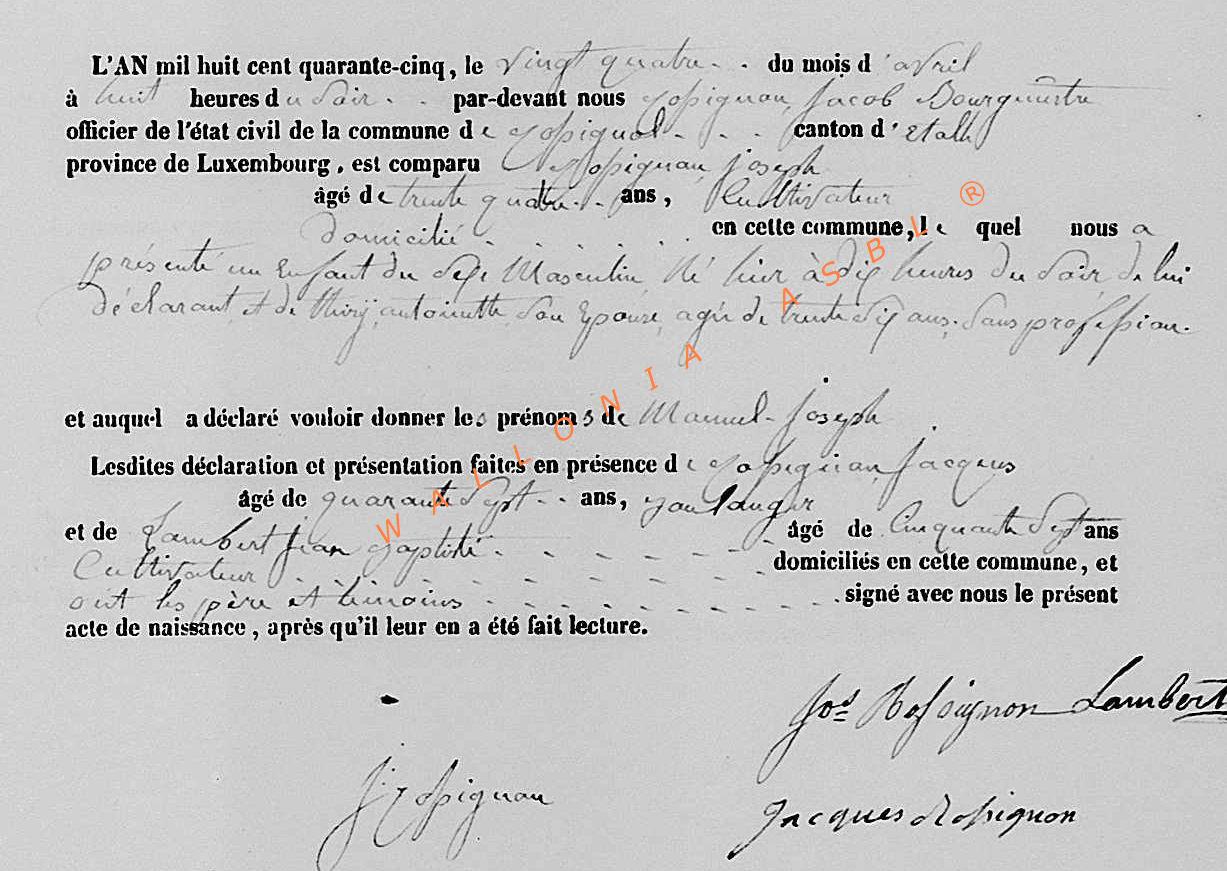 L'AN mil huit cent quarante-cinq, le vingt quatre du mois d'avril
à huit heures du Soir par-devant nous Rossignon, Jacob Bourguemestre
officier de l'état civil de la commune de Rossignol canton d'Etalle
province de Luxembourg, est comparu Rossignon, joseph
âgé de trente quatre ans, Cultivateur
domicilié en cette commune, lequel nous a
présenté un Enfant du Sexe Masculin, Né hier à dix heures du Soir, de lui
declarant, et de thiry, antoinette, Son Epouse, agée de trente Six ans. Sans profession.
et auquel a déclaré vouloir donner les prénoms de Manuel-Joseph
Lesdites déclaration et présentation faites en présence de Rossignon, Jacques
âgé de quarante Sept ans, boulanger
et de Lambert Jean baptiste âgé de Cinquante Sept ans
Cultivateur domiciliés en cette commune, et
ont les père et témoins signé avec nous le présent
acte de naissance, après qu'il leur en a été fait lecture.
Jos Rossignon Lambert
J. Rossignon
Jacques Rossignon
WALLONIA ASBL ®